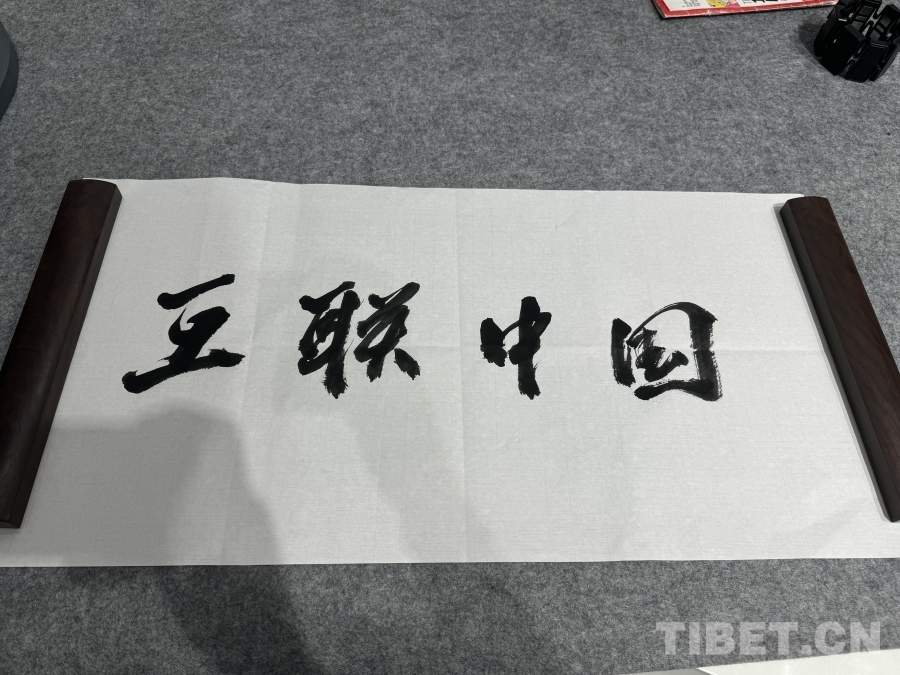 互联中国
TIBET.CN